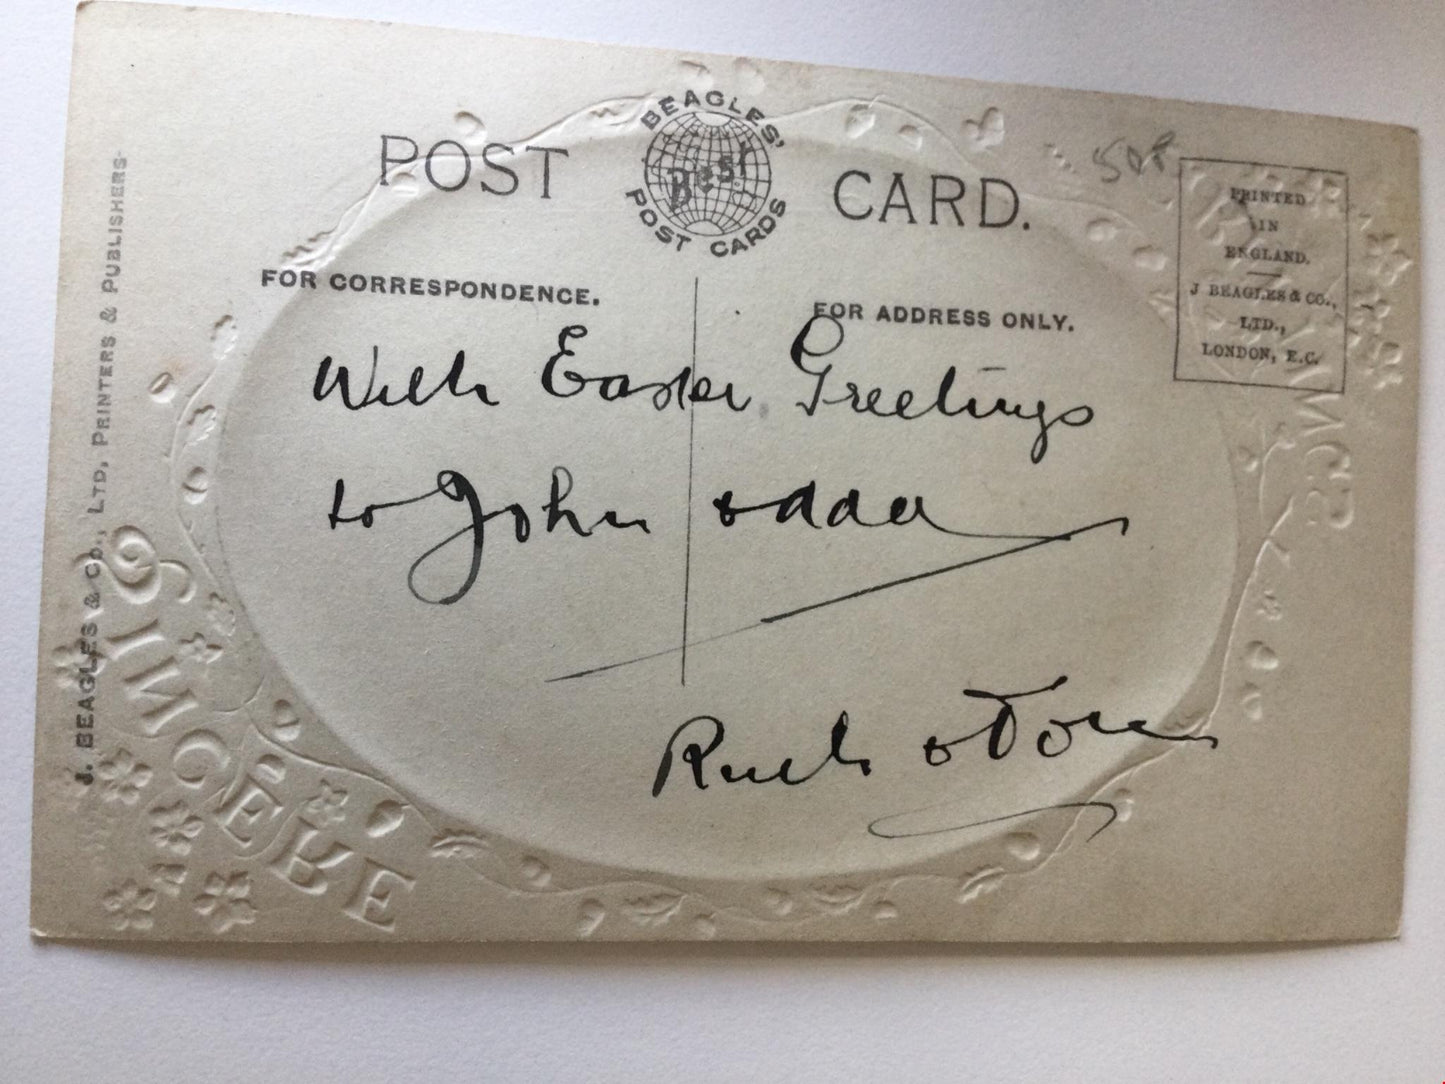 POST CARD.
BEAGLES'
Best
POST CARDS
PRINTED
IN
ENGLAND.
J BEAGLES & CO.,
LTD.,
LONDON, E.C.
FOR CORRESPONDENCE.
FOR ADDRESS ONLY.
With Easter Greetings
to John & Ada
Ruth & Tom
J. BEAGLES & CO., LTD, PRINTERS & PUBLISHERS
SINCERE